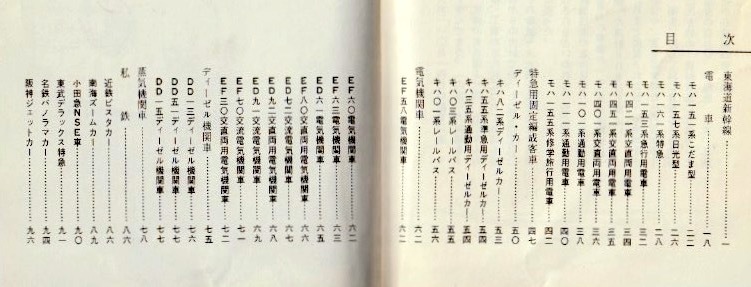 目次
東海道新幹線……一
電車……一八
モハ一五一系こだま型……二二
モハ一五七系日光型……二六
モハ一六一系特急……二八
モハ一五三系急行用電車……三二
モハ四二一系交直両用電車……三四
モハ四五一系交直両用電車……三五
モハ四〇一系交直両用電車……三六
モハ一〇一系通勤用電車……三八
モハ一一一系通勤用電車……四〇
モハ一五五系修学旅行用電車……四二
特急用固定編成客車……四七
ディーゼル・カー……五〇
キハ八二系ディーゼルカー……五一
キハ五五系準急用ディーゼルカー……五四
キハ三五系通勤用ディーゼルカー……五四
キハ〇三系レールバス……五五
キハ一〇系レールバス……六〇
電気機関車……六二
EF五八電気機関車……六二
EF六〇電気機関車……六二
EF六三電気機関車……六三
ED六一電気機関車……六五
EF八〇交直両用電気機関車……六六
ED七二交流電気機関車……六七
ED九二交直両用電気機関車……六八
ED九一交流電気機関車……六九
EF七〇交流電気機関車……七一
EF三〇交直両用電気機関車……七二
ディーゼル機関車……七五
DD一三ディーゼル機関車……七六
DD五一ディーゼル機関車……七七
DD一五ディーゼル機関車……七七
蒸気機関車……七八
私鉄……八六
近鉄ビスタカー……八六
南海ズームカー……八九
小田急NSE車……九〇
東武デラックス特急……九一
名鉄パノラマカー……九四
阪神ジェットカー……九六